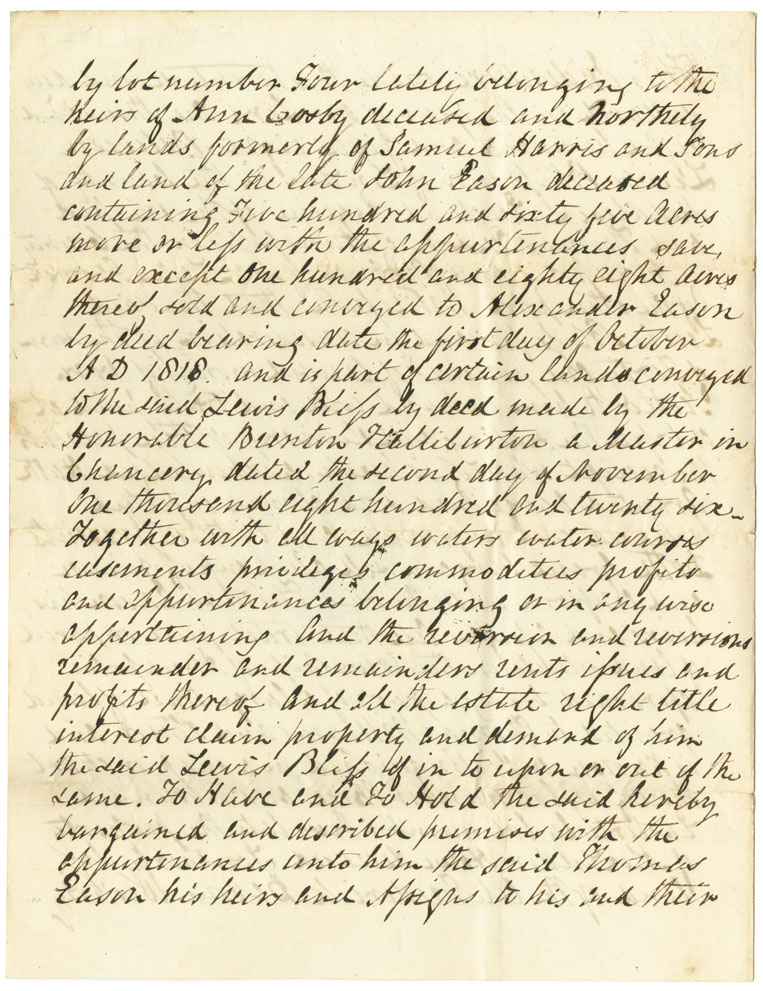 by lot number Four lately belonging to the
heirs of Ann Cosby deceased and Northely
by lands formerly of Samuel Harris and Sons
and land of the late John Eason deceased
containing Five hundred and sixty five Acres
more or less with the appurtenances save,
and except One hundred and eighty eight Acres
thereof sold and conveyed to Alexander Eason
by deed bearing date the first day of October
A D 1818. and is part of certain lands conveyed
to the said Lewis Bliss by deed made by the
Honorable Brenton Halliburton a Master in
Chancery dated the second day of November
One thousand eight hundred and twenty six_
Together with all ways waters water courses
easments privileges commodities profits
and appurtenances belonging or in any wise
appertaining And the reversion and reversions
remainder and remainders rents issues and
profits thereof And all the estate right title
interest claim property and demand of him
the said Lewis Bliss of in to upon or out of the
same. To Have and To Hold the said hereby
bargained and described premises with the
appurtenances unto him the said Thomas
Eason his heirs and Assigns to his and their